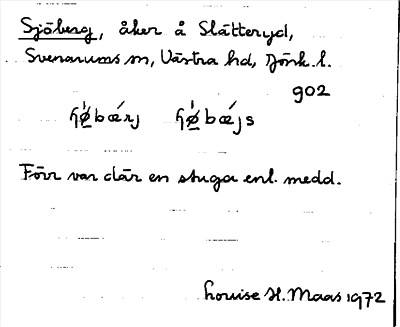 Sjöberg, åker å Slätteryd,
Svenarums sn, Västra hd, Jönk. l.
902
ɧø̀bærj ɧø̀bæjs
Förr var där en stuga enl. medd.
Louise H. Maas 1972